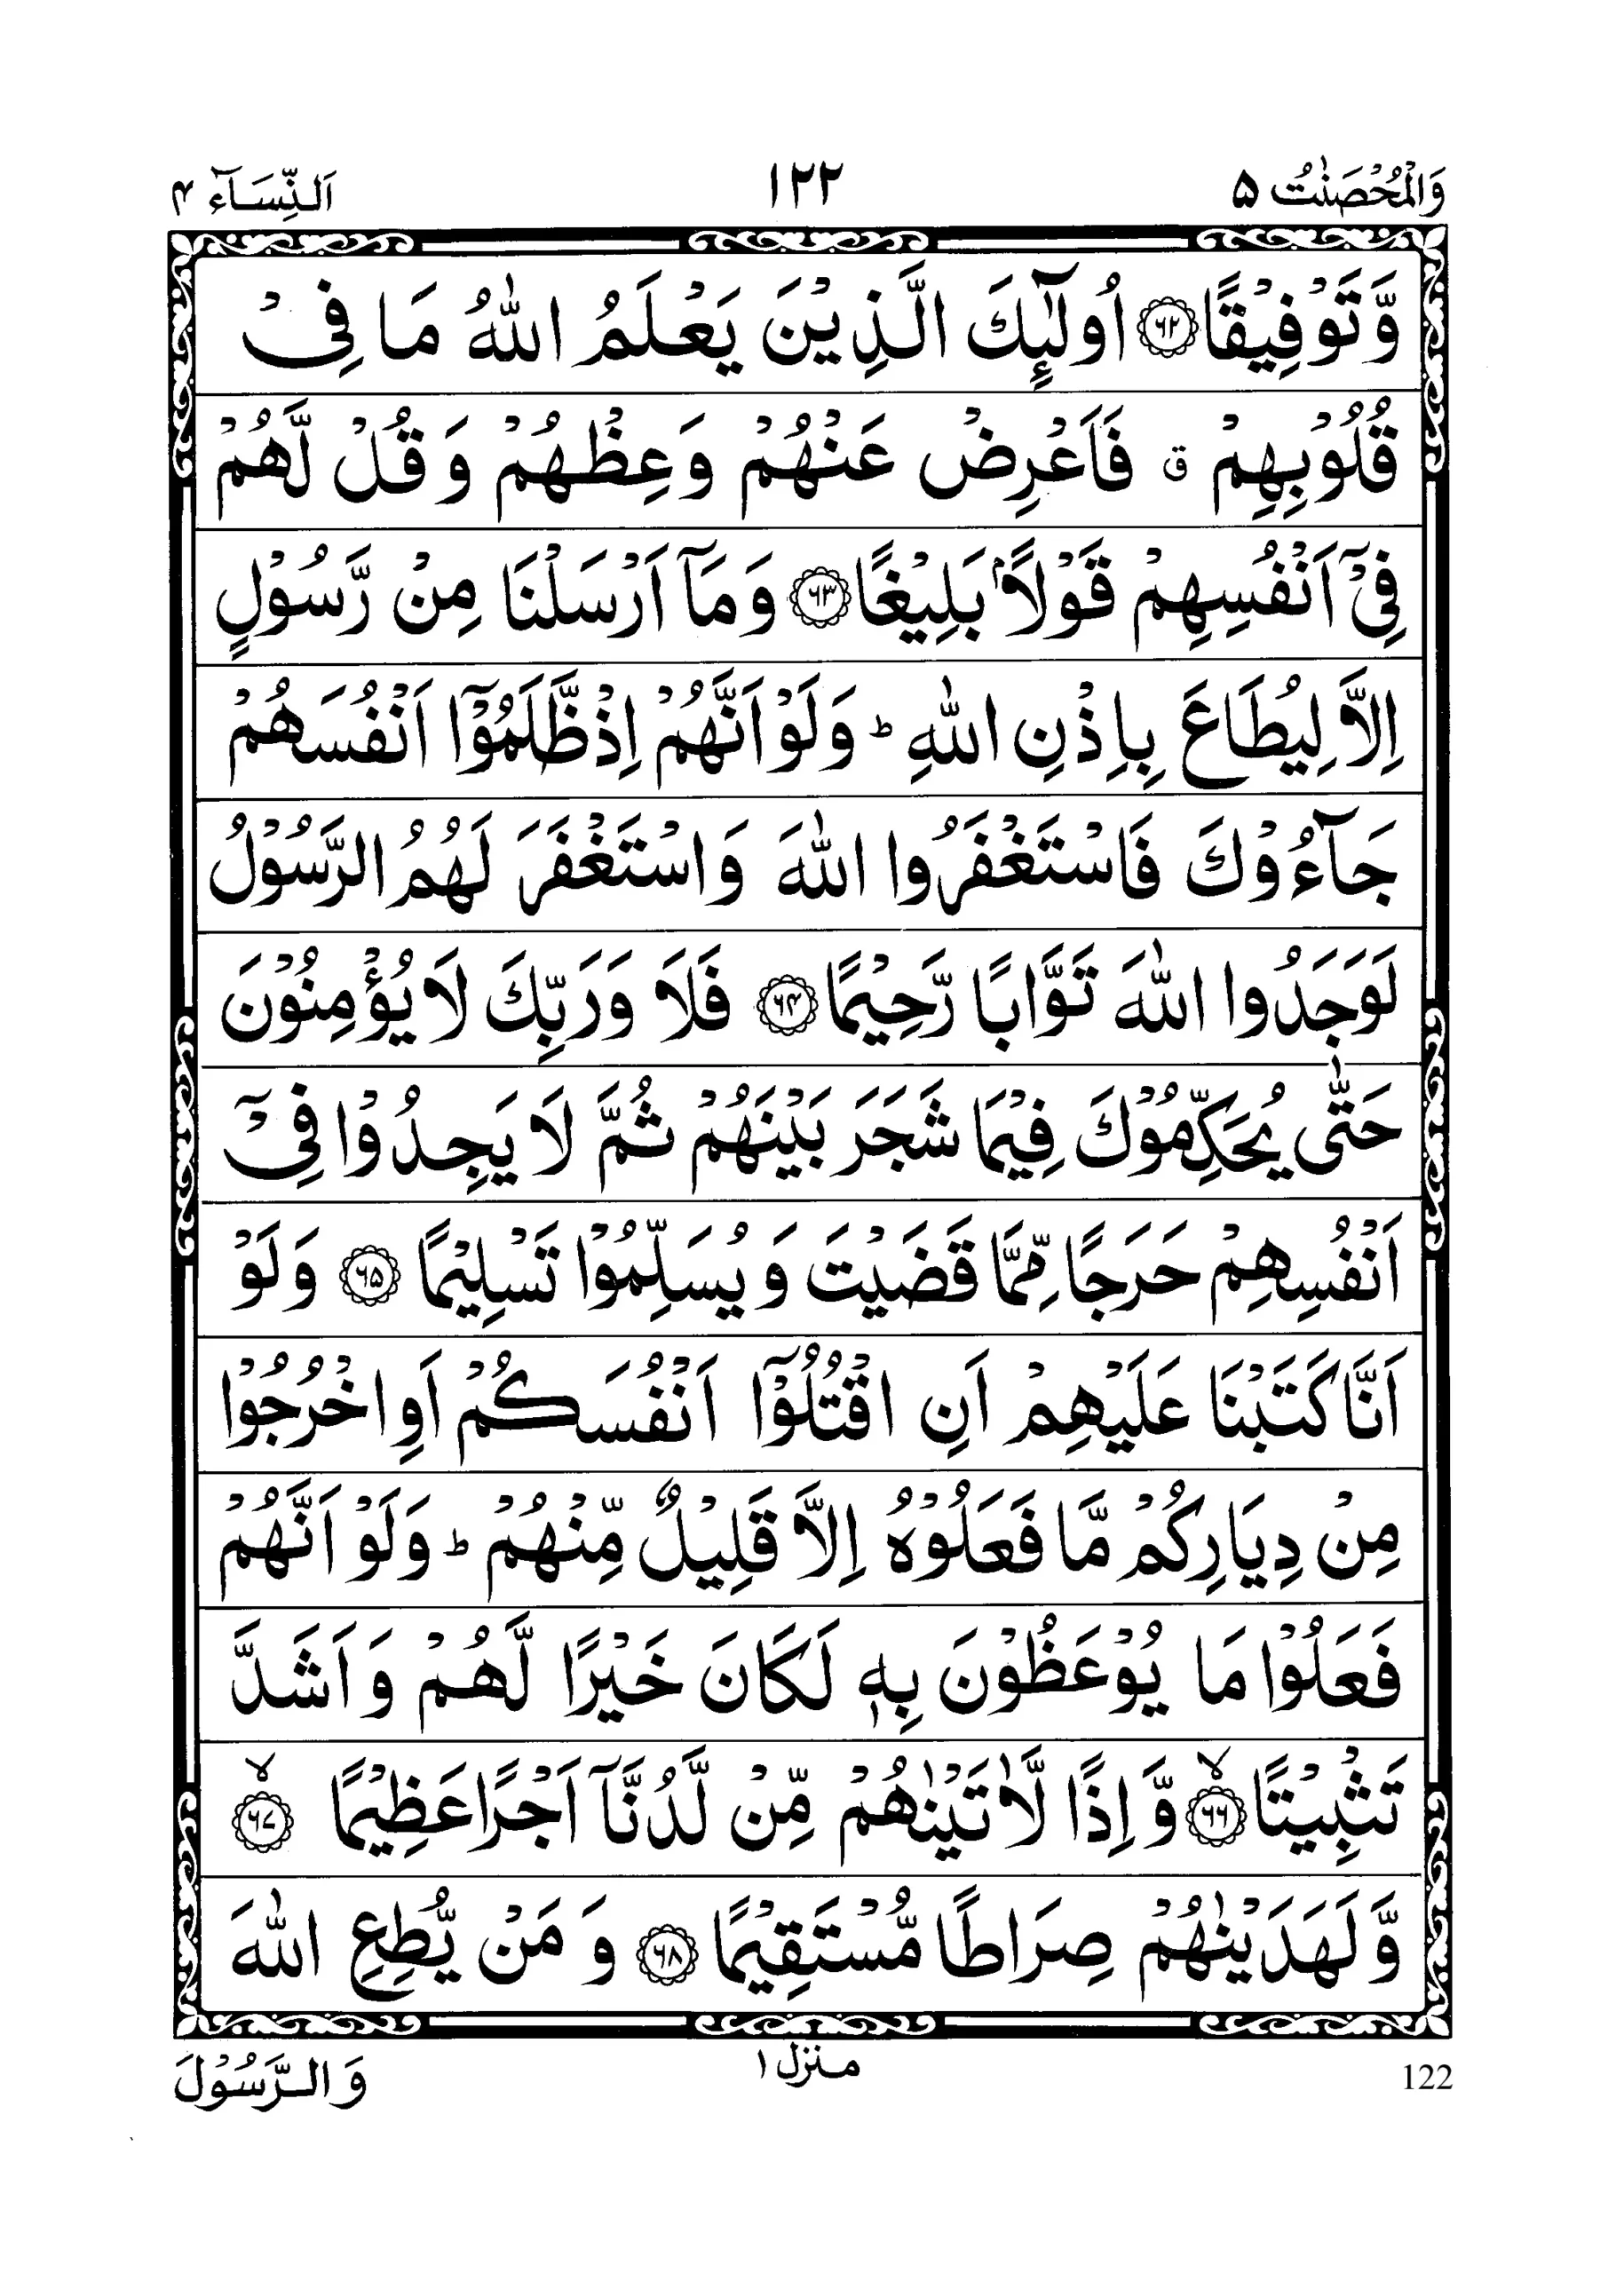 وَالْمُحْصَنٰتُ ۵ ۱۲۲ اَلنِّسَآء ۴
وَّتَوْفِيْقًا ﴿۶۲﴾ اُولٰٓئِكَ الَّذِيْنَ يَعْلَمُ اللّٰهُ مَا فِيْ
قُلُوْبِهِمْ ۗ فَاَعْرِضْ عَنْهُمْ وَعِظْهُمْ وَ قُلْ لَّهُمْ
فِيْٓ اَنْفُسِهِمْ قَوْلًاۢ بَلِيْغًا ﴿۶۳﴾ وَمَآ اَرْسَلْنَا مِنْ رَّسُوْلٍ
اِلَّا لِيُطَاعَ بِاِذْنِ اللّٰهِ ؕ وَلَوْ اَنَّهُمْ اِذْ ظَّلَمُوْٓا اَنْفُسَهُمْ
جَآءُوْكَ فَاسْتَغْفَرُوا اللّٰهَ وَاسْتَغْفَرَ لَهُمُ الرَّسُوْلُ
لَوَجَدُوا اللّٰهَ تَوَّابًا رَّحِيْمًا ﴿۶۴﴾ فَلَا وَرَبِّكَ لَا يُؤْمِنُوْنَ
حَتّٰى يُحَكِّمُوْكَ فِيْمَا شَجَرَ بَيْنَهُمْ ثُمَّ لَا يَجِدُوْا فِيْٓ
اَنْفُسِهِمْ حَرَجًا مِّمَّا قَضَيْتَ وَ يُسَلِّمُوْا تَسْلِيْمًا ﴿۶۵﴾ وَلَوْ
اَنَّا كَتَبْنَا عَلَيْهِمْ اَنِ اقْتُلُوْٓا اَنْفُسَكُمْ اَوِ اخْرُجُوْا
مِنْ دِيَارِكُمْ مَّا فَعَلُوْهُ اِلَّا قَلِيْلٌ مِّنْهُمْ ؕ وَلَوْ اَنَّهُمْ
فَعَلُوْا مَا يُوْعَظُوْنَ بِهٖ لَكَانَ خَيْرًا لَّهُمْ وَ اَشَدَّ
تَثْبِيْتًا ﴿۶۶﴾ۙ وَّاِذًا لَّاٰتَيْنٰهُمْ مِّنْ لَّدُنَّآ اَجْرًا عَظِيْمًا ﴿۶۷﴾ۙ
وَّلَهَدَيْنٰهُمْ صِرَاطًا مُّسْتَقِيْمًا ﴿۶۸﴾ وَ مَنْ يُّطِعِ اللّٰهَ
122 منزل ۱ وَ الرَّسُوْلَ